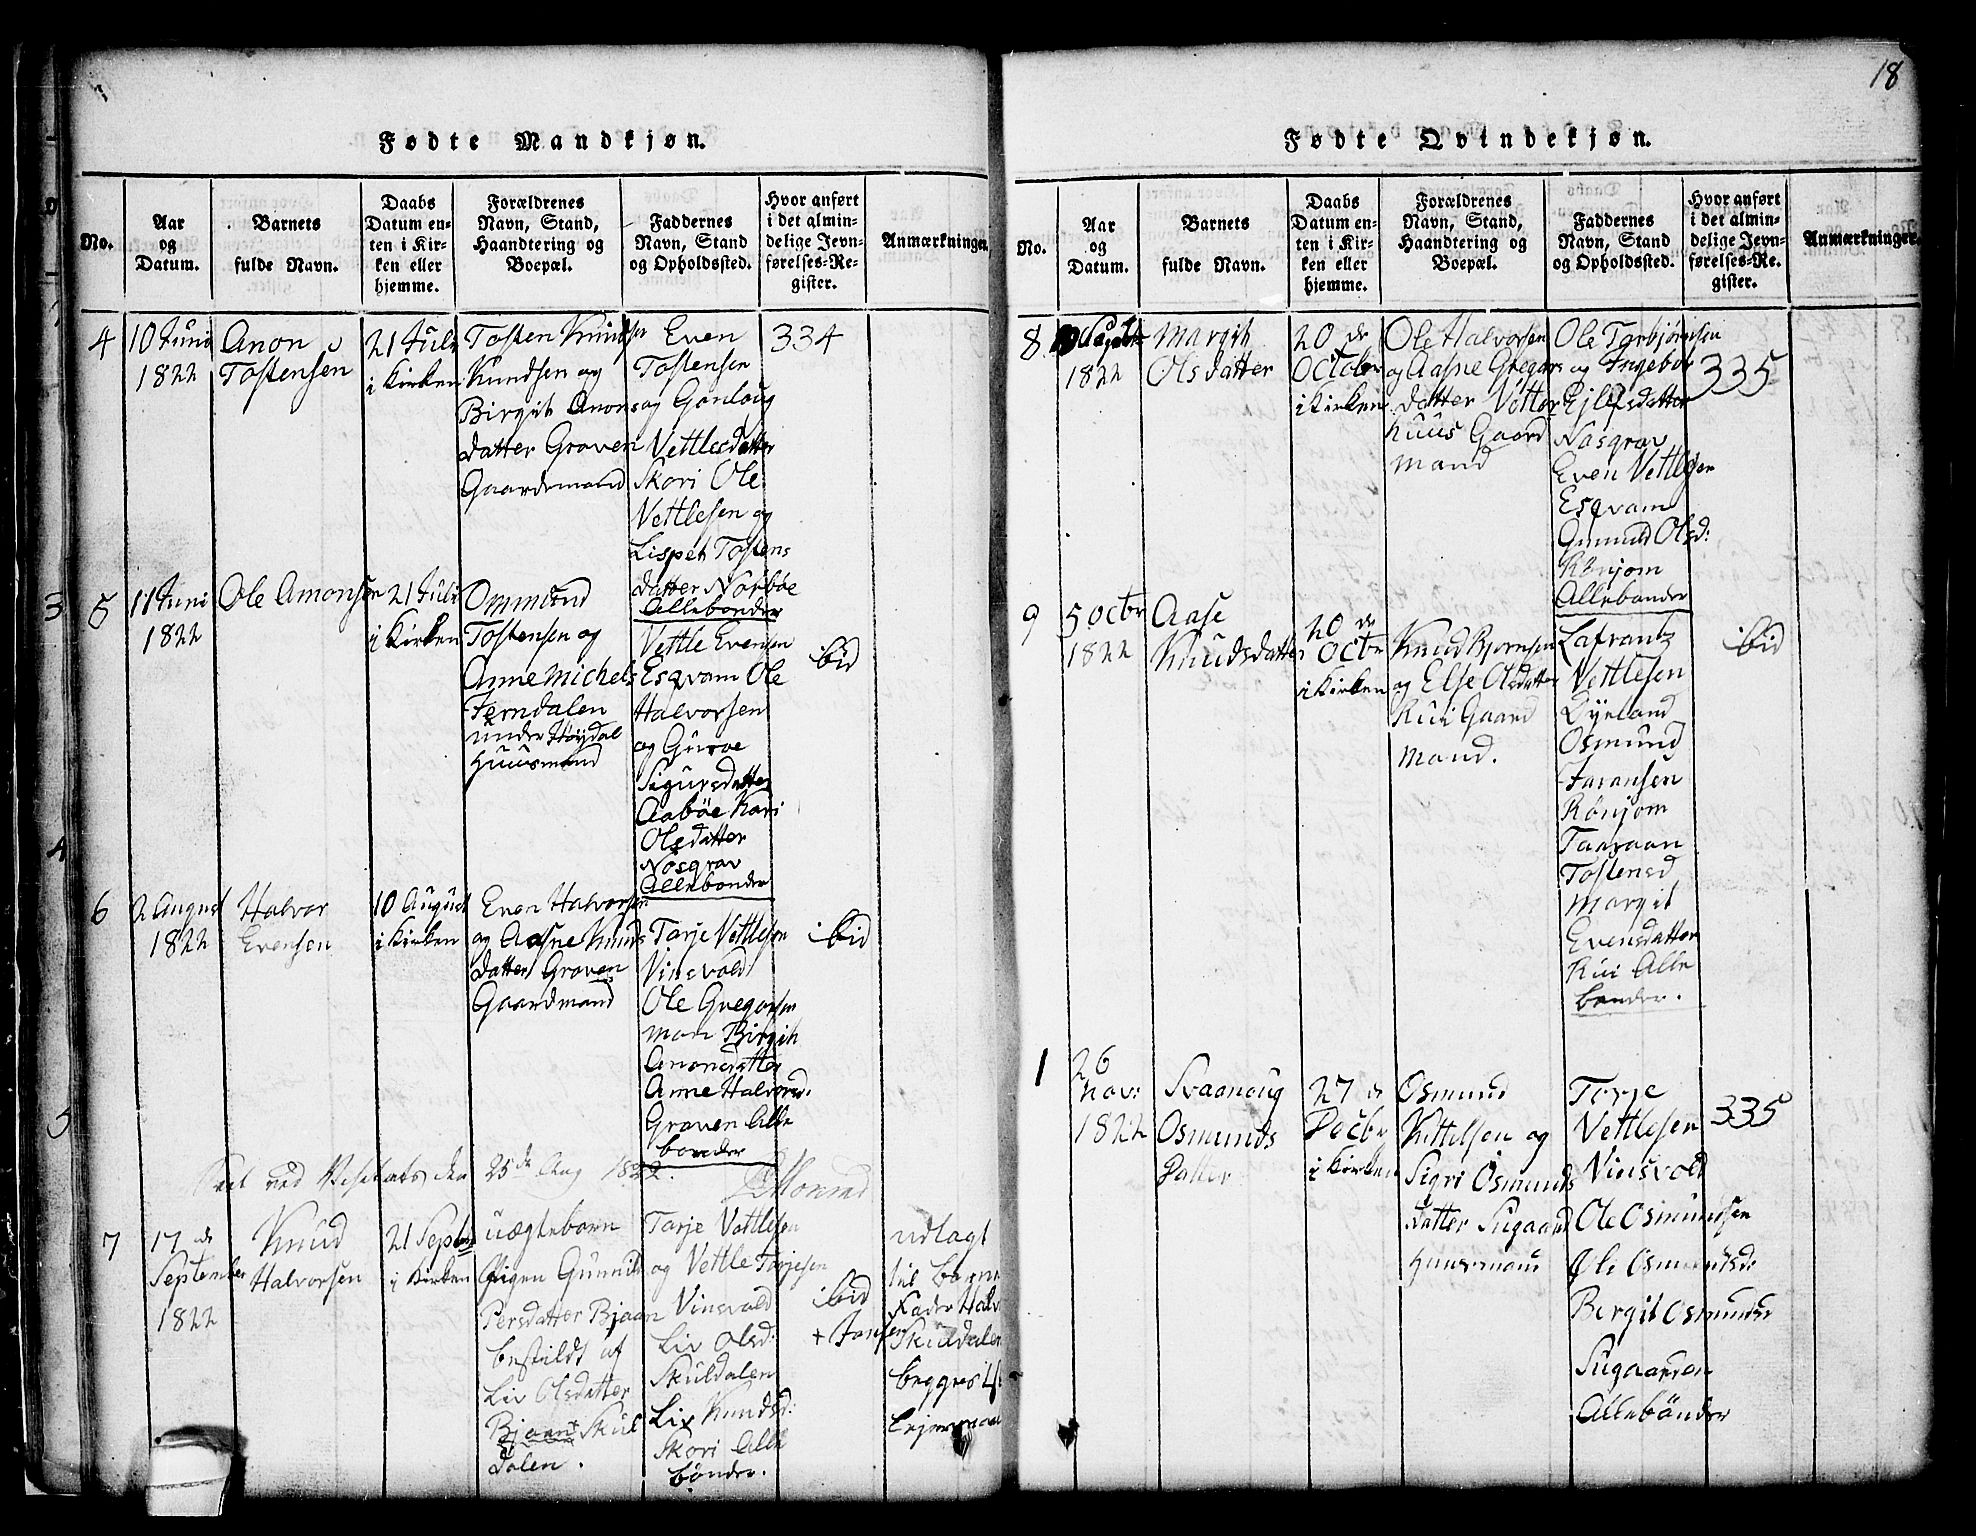 18
Fødte Mandkjøn.
No.
Aar
og
Datum.
Barnets
fulde Navn.
Daabs
Datum en-
ten i Kir-
ken eller
hjemme.
Forældrenes
Navn, Stand,
Haandtering og
Boepæl.
Faddernes
Navn, Stand
og Opholdssted.
Hvor anført
i det almin-
delige Jevn-
førelses-Re-
gister.
Anmærkninger.
4
10 Juni
1822
Anon
Tostensen
21 Juli
i Kirken
Tosten Knudsen
Knudsen og
Birgit Anons
datter Graven
Gaardmand
Even
Tostensen
og Gonloug
Vettlesdatter
Skori Ole
Vettlesen og
Lispet Tostens
datter Norbøe
Allebonder
334
5
11 Juni
1822
Ole Amonsen
21 Juli
i Kirken
Ommund
Tostensen og
Anne Michels
Jerndalen
under Høydal
Huusmand
Vettle Evensen
Esqvam Ole
Halvorsen
og Guroe
Sigursdatter
Aabøe Kari
Olsdatter
Nosgrav
Allebonder
ibid
6
2 August
1822
Halvor
Evensen
10 August
i Kirken
Even Halvorsen
og Aasne Knuds
datter Graven
Gaardmand
Tarje Vettlesen
Vinsvold
Ole Gregorsen
Mom Birgith
Anonsdatter
Anne Halvorsd:
Graven Alle
bonder
ibid
Seet ved Visitats den 25de Aug 1822.
Monrad
7
17 de
September
1822
Knud
Halvorsen
21 Septbr
i Kirken
uægteborn
Pigen Gunnild
Persdatter Bjaan
bestildt af
Liv Olsdatter
Bjaan + Skul
dalen.
Tarje Vettlesen
og Vettle Tarjesen
Vinsvold
Liv Olsd:
Skuldalen
Liv Knudsd:
Skori Alle
bønder.
ibid
+
udlagt
til barne
Fader Halv
Skuldalen
begges 1st
Lejermaal
Fødte Qvindekjøn.
No.
Aar
og
Datum.
Barnets
fulde Navn.
Daabs
Datum en-
ten i Kir-
ken eller
hjemme.
Forældrenes
Navn, Stand,
Haandtering og
Boepæl.
Faddernes
Navn, Stand
og Opholdssted.
Hvor anført
i det almin-
delige Jevn-
førelses-Re-
gister.
Anmærkninger.
8
1822
Margith
Olsdatter
20 de
Octobr
i Kirken
Ole Halvorsen
og Aasne Gregors
datter Vetter
huus Gaard
mand
Ole Torbjørnsen
og Ingebor
Ejlefsdatter
Nasgrav
Even Vettlesen
Esqvam
Gunnild Olsd:
Rønjom
Allebonder
335
9
5 Octbr
1822
Aase
Knudsdatter
20 de
Octbr
i Kirken
Knud Bjornsen
og Else Olsdatter
Rui Gaard
mand.
Lafrantz
Vettlesen
Dyrland
Osmund
Jaransen
Rønjom
Taaraan
Tostensd
Margit
Evensdatter
Rui Alle
bonder.
ibid
1
26
Nov:
1822
Svaanoug
Osmunds
Datter
27 de
Decbr
i Kirken
Osmund
Kittelsen og
Sigri Osmunds
datter Sugaard
Huusmand
Torje
Vettlesen
Vinsvold
Ole Osmundsen
Ole Osmundsd:
Bergit Osmundsd
Sugaarden
Allebønder
335